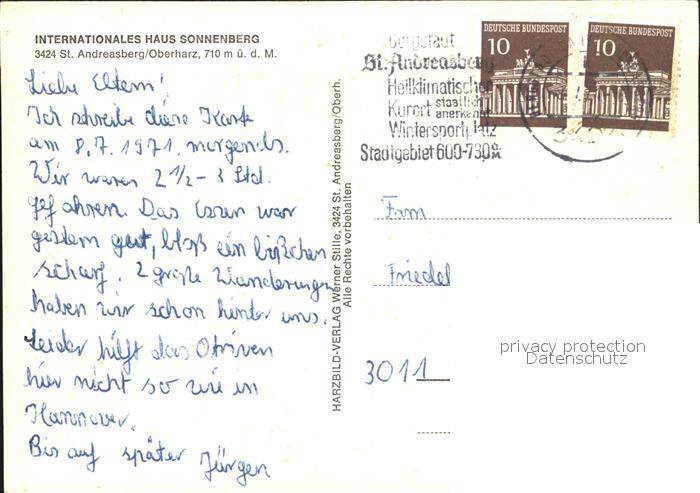 INTERNATIONALES HAUS SONNENBERG
3424 St. Andreasberg/Oberharz, 710 m ü. d. M.
Liebe Eltern!
Ich schreibe diese Karte
am 8.7.1971. morgends.
Wir waren 2 1/2 - 3 Std.
gefahren. Das Essen war
gestern gut, bloß ein bißchen
scharf. 2 große Wanderungen
haben wir schon hinter uns.
Leider hilft das Otriven
hier nicht so wie in
Hannover.
Bis auf später Jürgen
HARZBILD-VERLAG Werner Stille, 3424 St. Andreasberg/Oberh.
Alle Rechte vorbehalten
Bergstadt
St. Andreasberg
Heilklimatischer
Kurort staatlich
anerkannt
Wintersportplatz
Stadtgebiet 600-730 m
DEUTSCHE BUNDESPOST
10
DEUTSCHE BUNDESPOST
10
Fam
Friedel
3011
privacy protection
Datenschutz